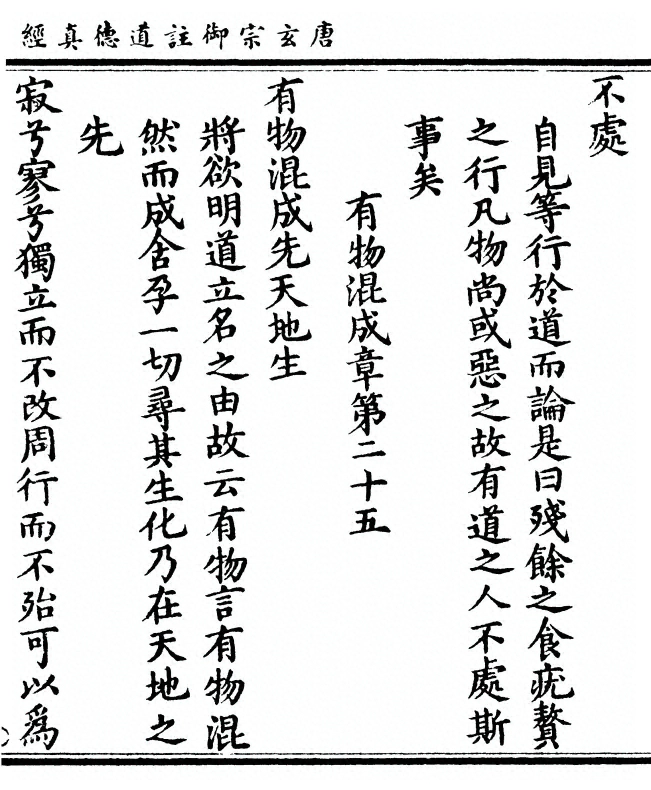 唐玄宗御註道德真經
不處
自見等行於道而論是曰殘餘之食疣贅
之行凡物尚或惡之故有道之人不處斯
事矣
有物混成章第二十五
有物混成先天地生
將欲明道立名之由故云有物言有物混
然而成含孕一切尋其生化乃在天地之
先
寂兮寥兮獨立而不改周行而不殆可以為